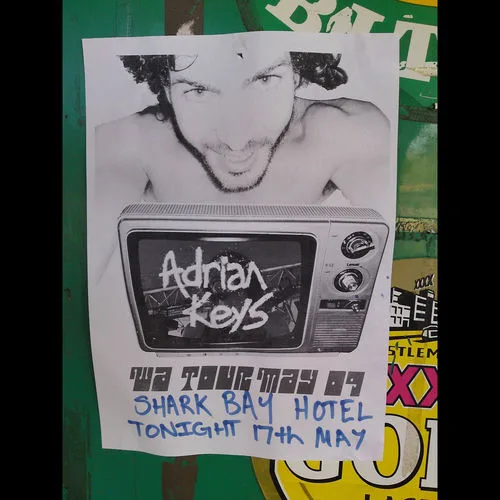 Adrian
Keys
WA TOUR MAY 09
SHARK BAY HOTEL
TONIGHT 17th MAY
XXXX
STLEM
XX
GOL
LAG